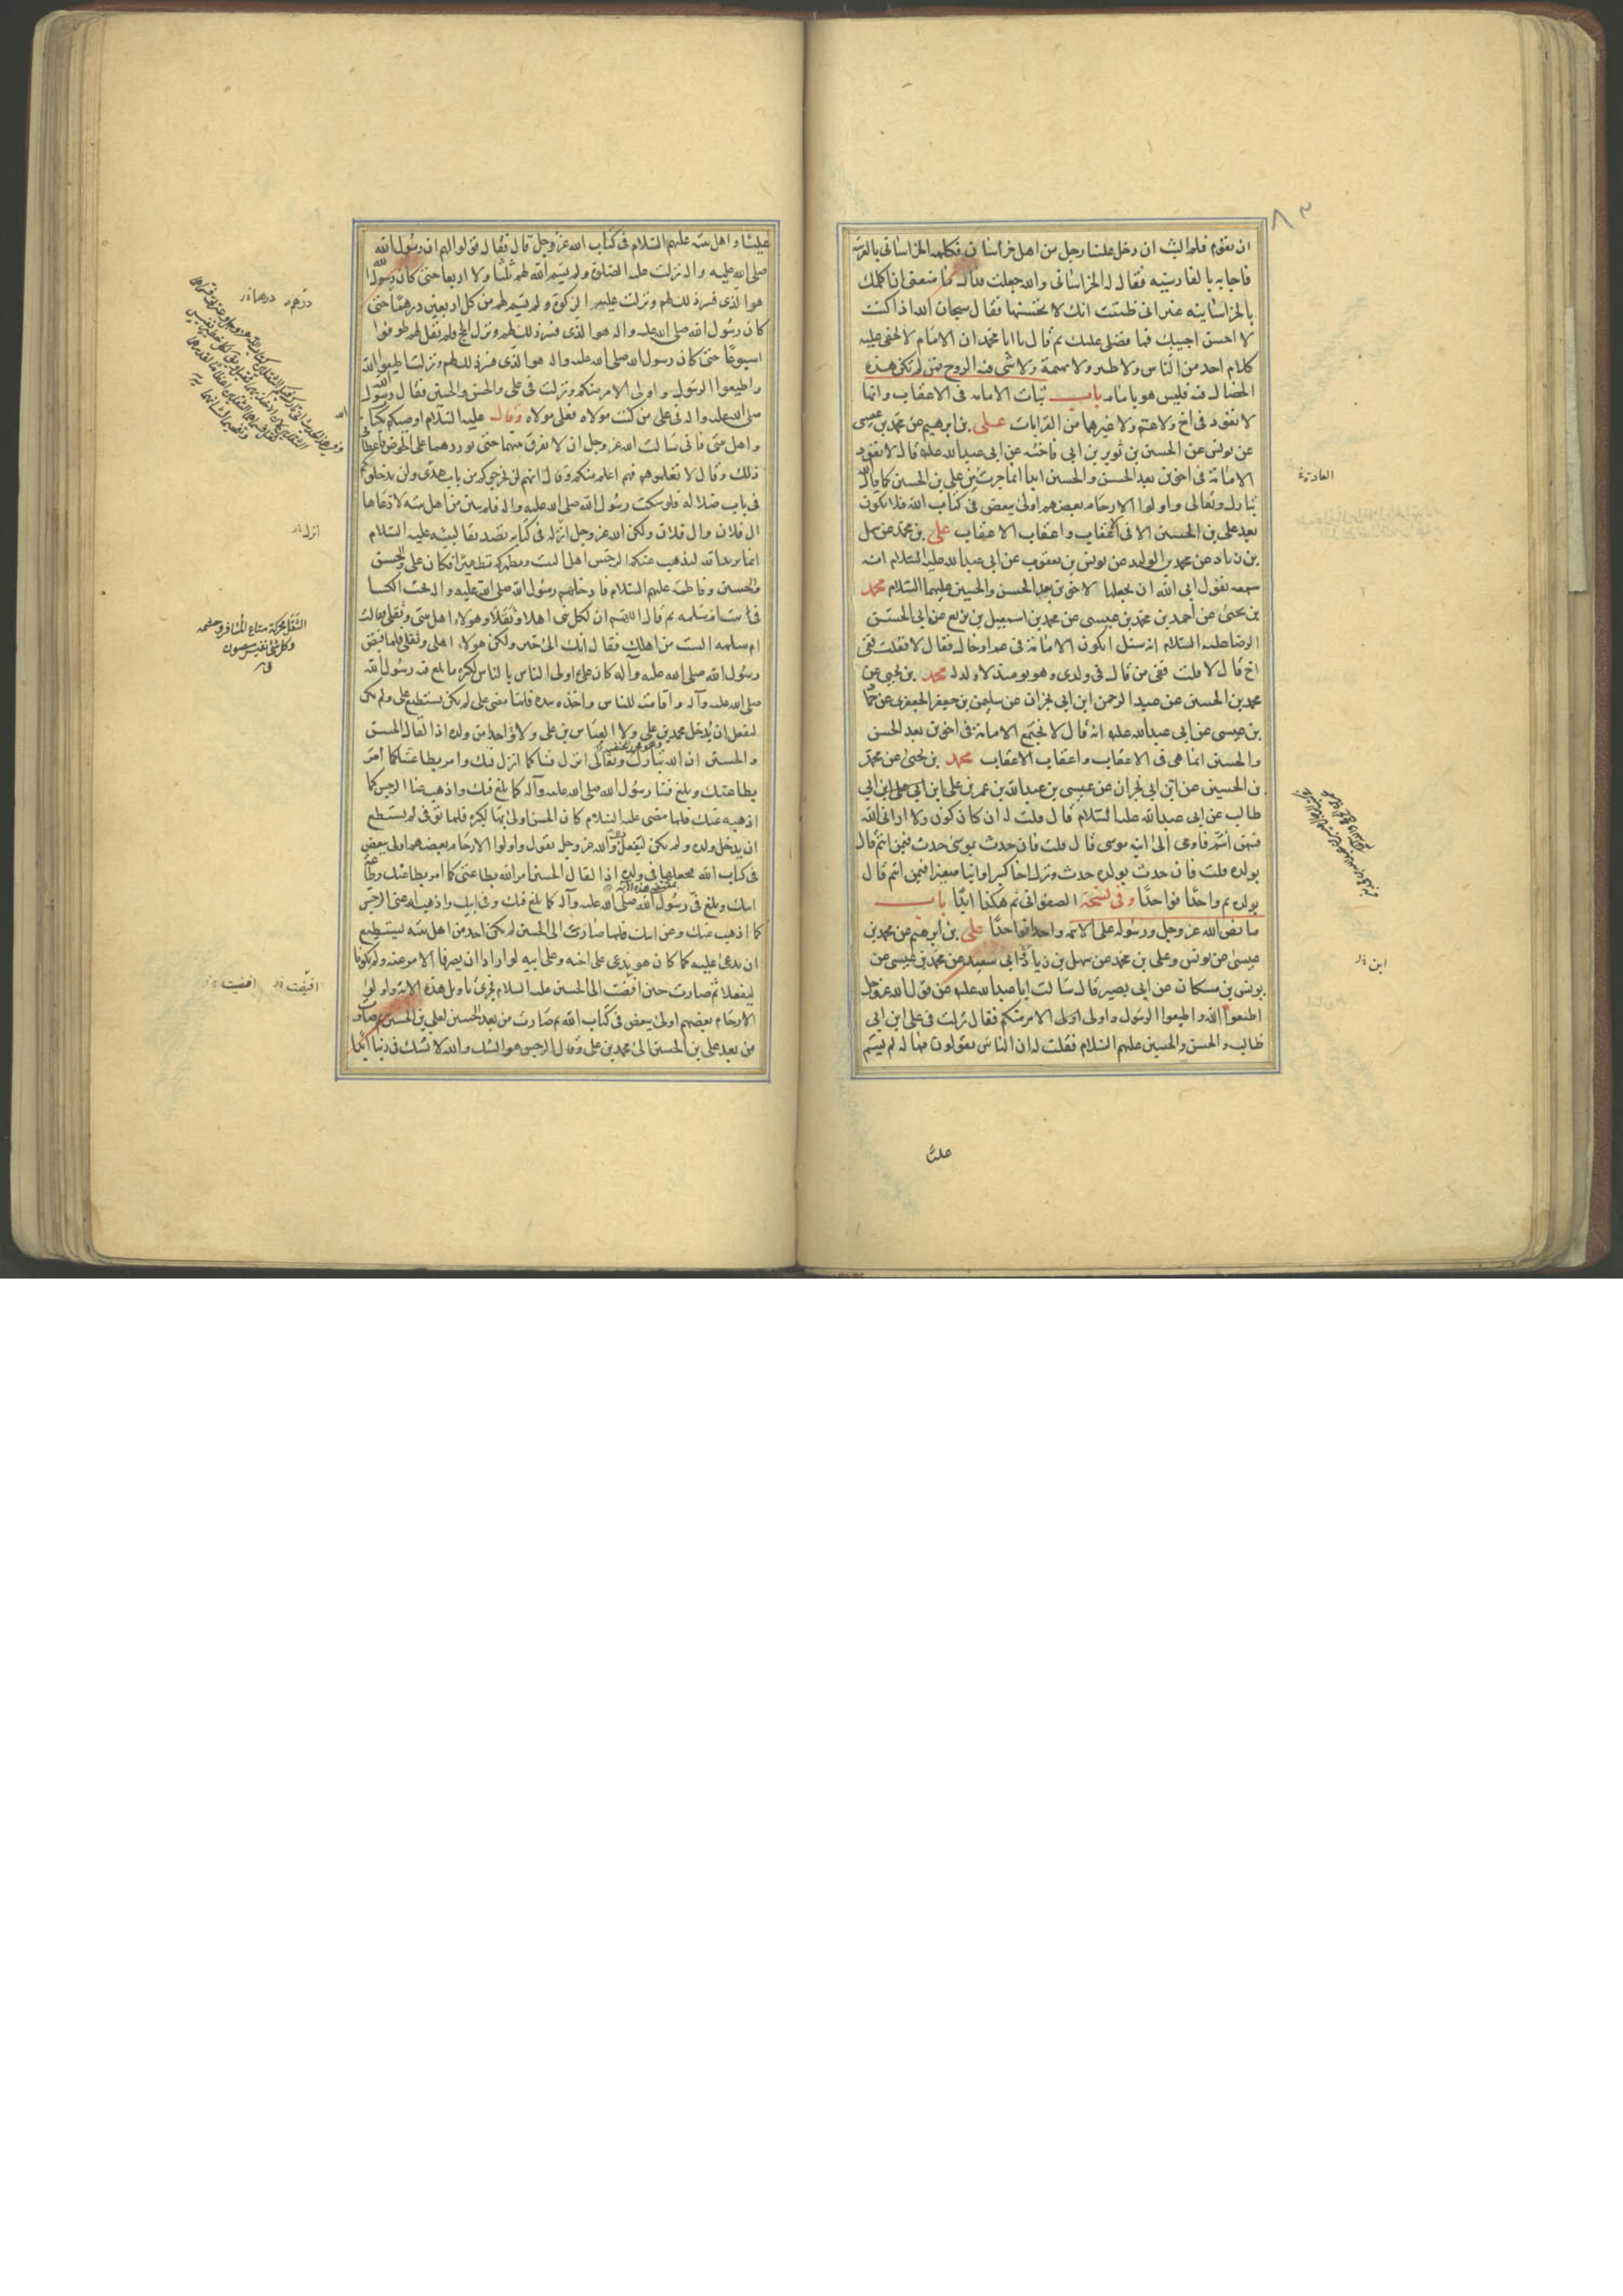 ٨٣
ان نقوم فلم البث ان دخل علينا رجل من اهل خراسان فكلمه الخراسانى بالعربية
فاجابه بالفارسية فقال له الخراسانى والله جعلت فداك ما منعنى ان اكلمك
بالخراسانية غير انى ظننت انك لا تحسنها فقال سبحان الله اذا كنت
لا احسن اجيبك فما فضلى عليك ثم قال يا ابا محمد ان الامام لا يخفى عليه
كلام احد من الناس ولا طير ولا بهيمة ولا شى فيه الروح فمن لم تكن هذه
الخصال فيه فليس هو بامام باب ثبات الامامة فى الاعقاب وانها
لا تعود فى اخ ولا عم ولا غيرهما من القرابات على بن ابرهيم عن محمد بن عيسى
عن يونس عن الحسين بن ثوير بن ابى فاخته عن ابى عبد الله عليه قال لا تعود
الامامة فى اخوين بعد الحسن والحسين ابدا انما جرت من على بن الحسين كما قال الله
تبارك وتعالى واولوا الارحام بعضهم اولى ببعض فى كتاب الله فلا تكون
بعد على بن الحسين الا فى الاعقاب واعقاب الاعقاب على بن محمد عن سهل
بن زياد عن محمد بن الوليد عن يونس بن يعقوب عن ابى عبد الله عليه السلام انه
سمعه يقول ابى الله ان يجعلها لاخوين بعد الحسن والحسين عليهما السلام محمد
بن يحيى عن احمد بن محمد بن عيسى عن محمد بن اسمعيل بن بزيع عن ابى الحسن
الرضا عليه السلام انه سئل اتكون الامامة فى عم او خال فقال لا فقلت ففى
اخ قال لا قلت ففى من قال فى ولدى وهو يومئذ لا ولد له محمد بن يحيى عن
محمد بن الحسين عن عبد الرحمن ابن ابى نجران عن سليمن بن جعفر الجعفرى عن حماد
بن عيسى عن ابى عبد الله عليه انه قال لا تجتمع الامامة فى اخوين بعد الحسن
والحسين انما هى فى الاعقاب واعقاب الاعقاب محمد بن يحيى عن محمد
بن الحسين عن ابن ابى نجران عن عيسى بن عبد الله بن عمر بن على ابن ابى طالب
طالب عن ابى عبد الله عليه السلام قال قلت له ان كان كون ولا ارانى الله
فبمن أئتم فاومى الى ابنه موسى قال قلت فان حدث بموسى حدث فبمن ائتم قال
بولده قلت فان حدث بولده حدث وترك اخا كبيرا وابنا صغيرا فبمن ائتم قال
بولده ثم واحدا فواحدا وفى نسخة الصفوانى ثم هكذا ابدا باب
ما نص الله عز وجل ورسوله على الائمه واحدا فواحدا على بن ابرهيم عن محمد بن
عيسى عن يونس وعلى بن محمد عن سهل بن زياد ابى سعيد عن محمد بن عيسى عن
يونس بن مسكان عن ابى بصير قال سالت ابا عبد الله عليه عن قول الله عز وجل
اطيعوا الله واطيعوا الرسول واولى الامر منكم فقال نزلت فى على ابن ابى
طالب والحسن والحسين عليهم السلام فقلت له ان الناس يقولون فما له لم يسم
ابن
عليا
عليا واهل بيته عليهم السلام فى كتاب الله عز وجل قال فقال قولوا لهم ان رسول الله
صلى الله عليه واله نزلت عليه الصلوة ولم يسم الله لهم ثلثا ولا اربعا حتى كان رسول الله
هو الذى فسر ذلك لهم ونزلت عليه الزكوة ولم يسم لهم من كل اربعين درهما حتى
كان رسول الله صلى الله عليه واله هو الذى فسر ذلك لهم ونزل الحج فلم يقل لهم طوفوا
اسبوعا حتى كان رسول الله صلى الله عليه واله هو الذى فسر ذلك لهم ونزلت اطيعوا الله
واطيعوا الرسول واولى الامر منكم ونزلت فى على والحسن والحسين فقال رسول الله
صلى الله عليه واله فى على من كنت مولاه فعلى مولاه وقال عليه السلام اوصيكم بكتاب
واهل بيتى فانى سالت الله عز وجل ان لا يفرق بينهما حتى يوردهما على الحوض فاعطانى
ذلك وقال لا تعلموهم فهم اعلم منكم وقال انهم لن يخرجوكم من باب هدى ولن يدخلوكم
فى باب ضلالة فلو سكت رسول الله صلى الله عليه واله فلم يبين من اهل بيته لادعاها
ال فلان وال فلان ولكن الله عز وجل انزله فى كتابه تصديقا لنبيه عليه السلام
انما يريد الله ليذهب عنكم الرجس اهل البيت ويطهركم تطهيرا فكان على والحسن
والحسين وفاطمة عليهم السلام فادخلهم رسول الله صلى الله عليه واله تحت الكسا
فى بيت ام سلمه ثم قال اللهم ان لكل نبى اهلا وثقلا وهولاء اهل بيتى وثقلى فقالت
ام سلمه الست من اهلك فقال انك الى خير ولكن هولاء اهلى وثقلى فلما قبض
رسول الله صلى الله عليه وآله كان على اولى الناس بالناس لكثرة ما بلغ فيه رسول الله
صلى الله عليه وآله واقامته للناس واخذه بيده فلما مضى على لم يكن يستطيع على ولم يكن
ليفعل ان يدخل محمد بن على ولا العباس بن على ولا واحدا من ولده اذا لقال الحسن
والحسين ان الله تبارك وتعالى انزل فينا كما انزل فيك وامر بطاعتنا كما امر
بطاعتك وبلغ فينا رسول الله صلى الله عليه وآله كما بلغ فيك واذهب عنا الرجس كما
اذهبه عنك فلما مضى على عليه السلام كان الحسن اولى بها لكبره فلما توفى لم يستطع
ان يدخل ولده ولم يكن ليفعل والله عز وجل يقول واولوا الارحام بعضهم اولى ببعض
فى كتاب الله فيجعلها فى ولده اذا لقال الحسين امر الله بطاعتى كما امر بطاعتك وطاعة
ابيك وبلغ فى رسول الله صلى الله عليه وآله كما بلغ فيك وفى ابيك واذهب الله عنى الرجس
كما اذهب عنك وعن ابيك فلما صارت الى الحسين لم يكن احد من اهل بيته يستطيع
ان يدعى عليه كما كان هو يدعى على اخيه وعلى ابيه لو ارادا ان يصرفا الامر عنه ولم يكونا
ليفعلا ثم صارت حين افضت الى الحسين عليه السلام فجرى تاويل هذه الاية واولوا
الارحام بعضهم اولى ببعض فى كتاب الله ثم صارت من بعد الحسين لعلى بن الحسين ثم صارت
من بعد على بن الحسين الى محمد بن على وقال الرجس هو الشك والله لا نشك فى ربنا ابدا
درهم درهما
انزل
الثقل محركة متاع المسافر وحشمه
وكل شئ نفيس مصون
ق
افضت